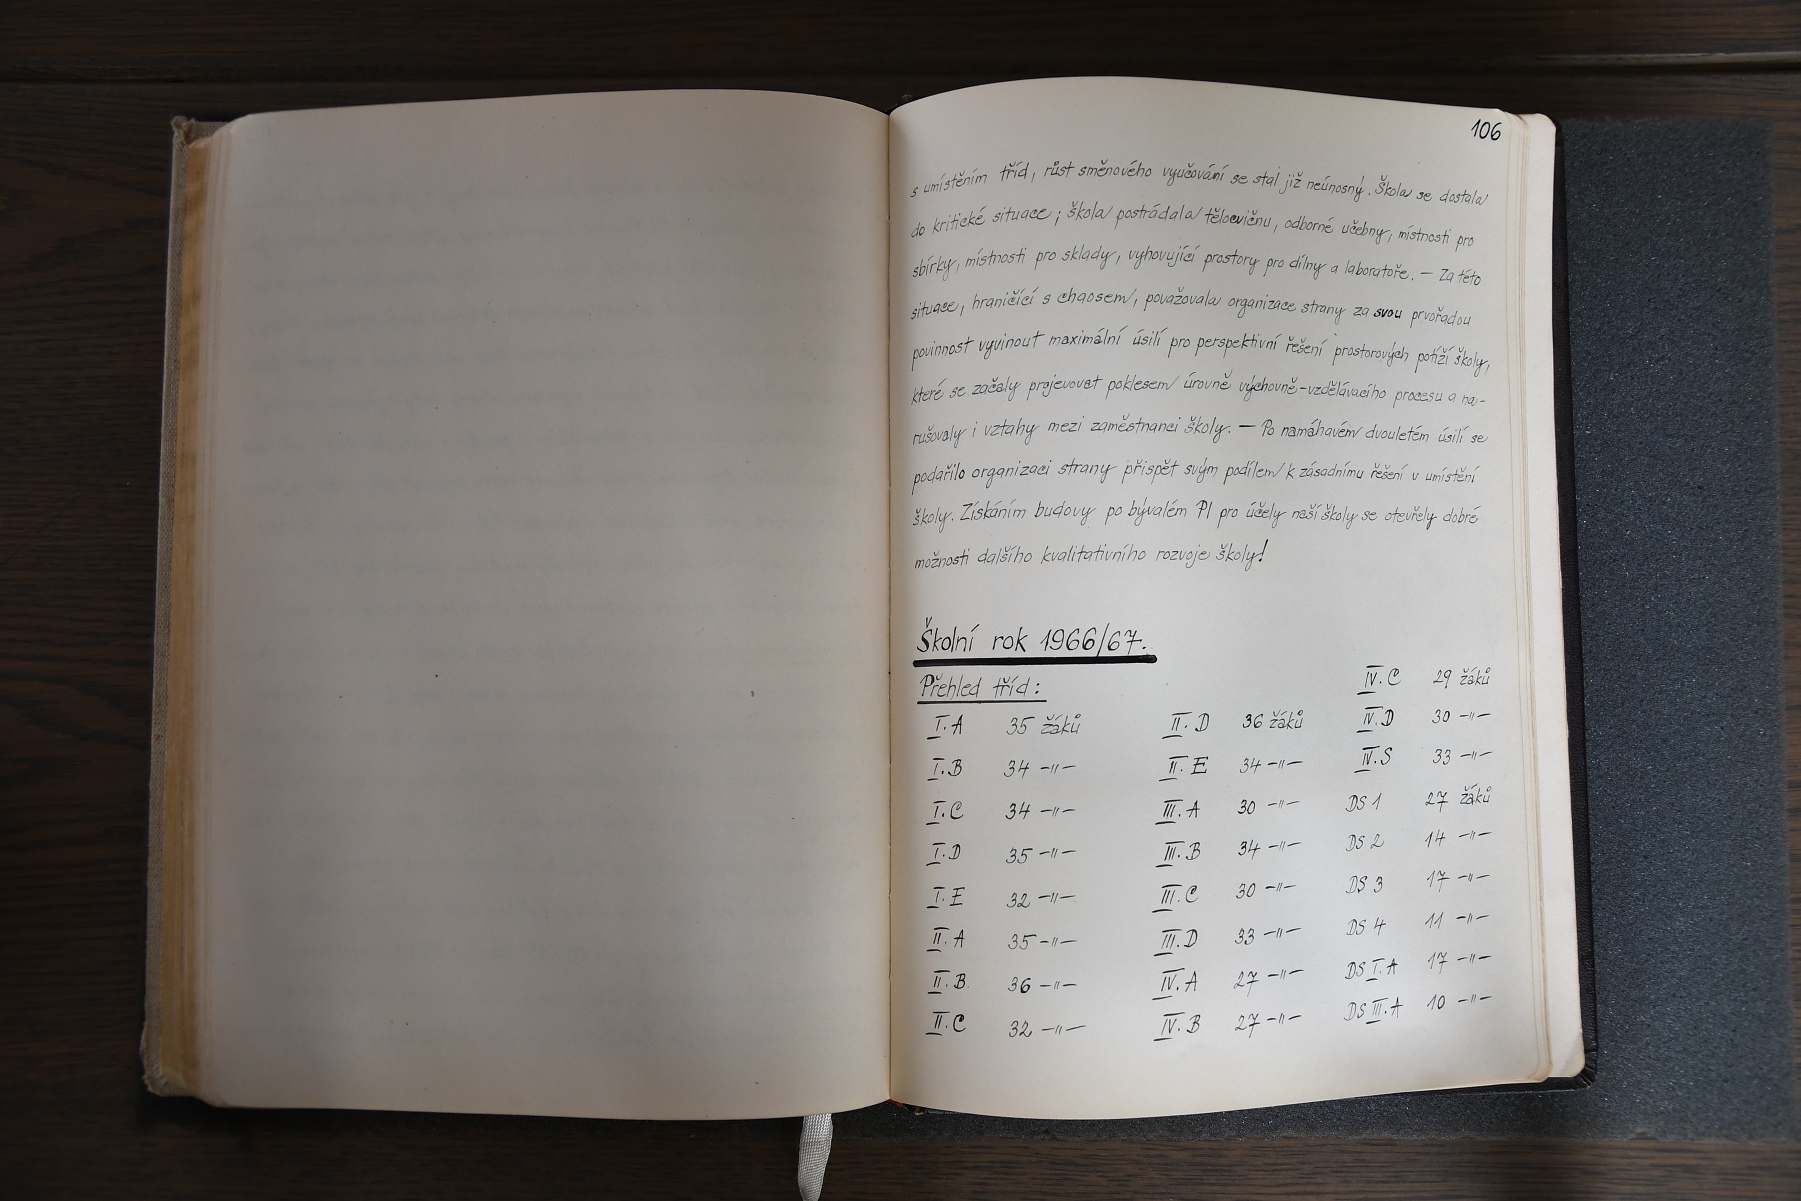 106
s umístěním tříd, růst směnového vyučování se stal již neúnosný. Škola se dostala
do kritické situace; škola postrádala tělocvičnu, odborné učebny, místnosti pro
sbírky, místnosti pro sklady, vyhovující prostory pro dílny a laboratoře. — Za této
situace, hraničící s chaosem, považovala organizace strany za svou prvořadou
povinnost vyvinout maximální úsilí pro perspektivní řešení prostorových potíží školy,
které se začaly projevovat poklesem úrovně výchovně-vzdělávacího procesu a na-
rušovaly i vztahy mezi zaměstnanci školy. — Po namáhavém dvouletém úsilí se
podařilo organizaci strany přispět svým podílem k zásadnímu řešení v umístění
školy. Získáním budovy po bývalém PI pro účely naší školy se otevřely dobré
možnosti dalšího kvalitativního rozvoje školy!
Školní rok 1966/67.
Přehled tříd:
I.A 35 žáků
I.B 34 -"-
I.C 34 -"-
I.D 35 -"-
I.E 32 -"-
II.A 35 -"-
II.B. 36 -"-
II.C 32 -"-
II.D 36 žáků
II.E 34 -"-
III.A 30 -"-
III.B 34 -"-
III.C 30 -"-
III.D 33 -"-
IV.A 27 -"-
IV.B 27 -"-
IV.C 29 žáků
IV.D 30 -"-
IV.S 33 -"-
DS 1 27 žáků
DS 2 14 -"-
DS 3 17 -"-
DS 4 11 -"-
DS I.A 17 -"-
DS III.A 10 -"-